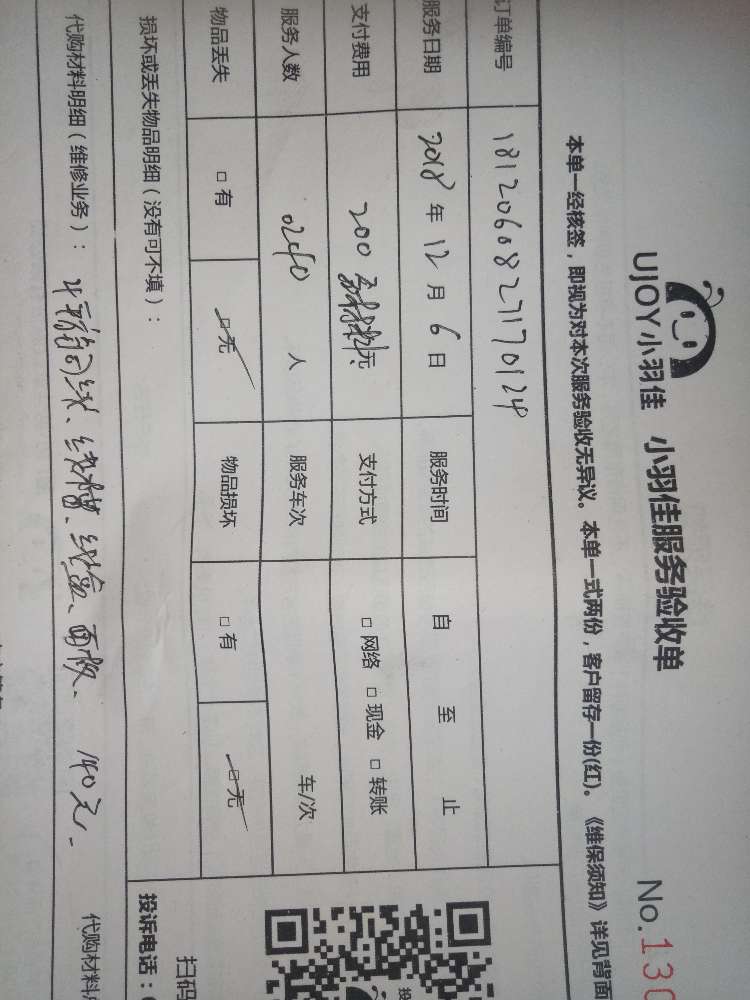 UJOY小羽佳 小羽佳服务验收单
No.130
本单一经核签，即视为对本次服务验收无异议。本单一式两份，客户留存一份(红)。《维保须知》详见背面
订单编号 1812060827170124
服务日期 2018年12月6日 服务时间 自 至 止
支付费用 200 元 支付方式 □网络 □现金 □转账
服务人数 0240 人 服务车次 车/次
物品丢失 □有 □无 物品损坏 □有 □无
损坏或丢失物品明细（没有可不填）：
代购材料明细（维修业务）： 线、线槽、线盒、面板、 140元.
代购材料
投诉电话：
扫码
投